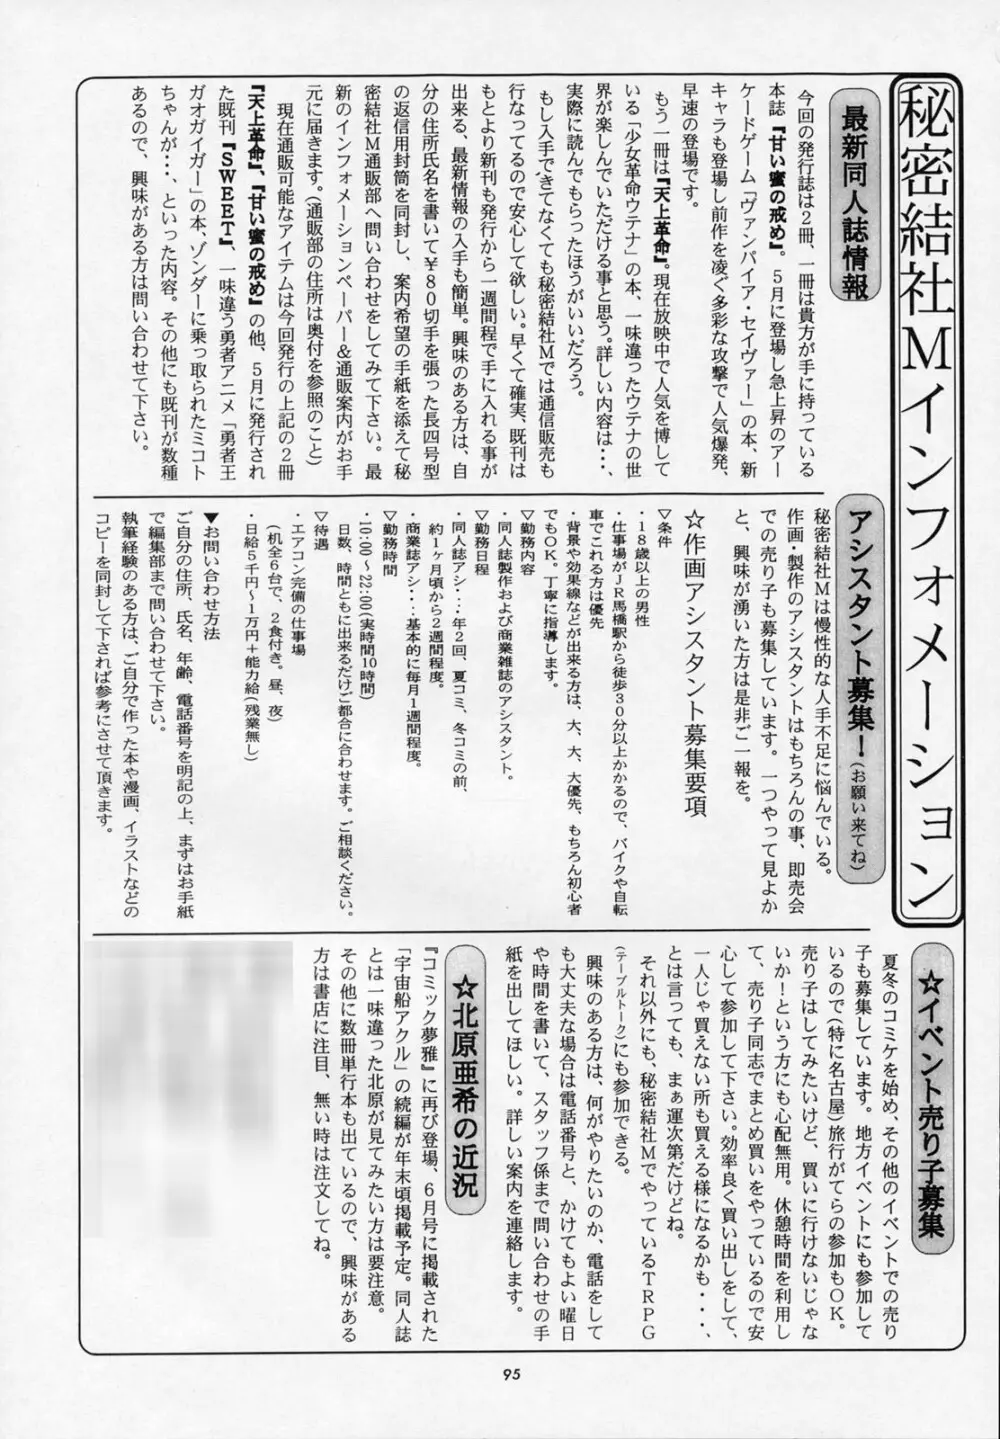 秘密結社Mインフォメーション
最新同人誌情報
今回の発行誌は2冊、一冊は貴方が手に持っている
本誌『甘い蜜の戒め』。5月に登場し急上昇のアー
ケードゲーム「ヴァンパイア・セイヴァー」の本、新
キャラも登場し前作を凌ぐ多彩な攻撃で人気爆発、
早速の登場です。
もう一冊は『天上革命』。現在放映中で人気を博して
いる「少女革命ウテナ」の本、一味違ったウテナの世
界が楽しんでいただける事と思う。詳しい内容は・・・、
実際に読んでもらったほうがいいだろう。
もし入手できてなくても秘密結社Mでは通信販売も
行なってるので安心して欲しい。早くて確実、既刊は
もとより新刊も発行から一週間程で手に入れる事が
出来る、最新情報の入手も簡単。興味のある方は、自
分の住所氏名を書いて￥80切手を張った長四号型
の返信用封筒を同封し、案内希望の手紙を添えて秘
密結社M通販部へ問い合わせをしてみて下さい。最
新のインフォメーションペーパー＆通販案内がお手
元に届きます。(通販部の住所は奥付を参照のこと)
現在通販可能なアイテムは今回発行の上記の2冊
『天上革命』、『甘い蜜の戒め』の他、5月に発行され
た既刊『SWEET』、一味違う勇者アニメ「勇者王
ガオガイガー」の本、ゾンダーに乗っ取られたミコト
ちゃんが・・・、といった内容。その他にも既刊が数種
あるので、興味がある方は問い合わせて下さい。
アシスタント募集！(お願い来てね)
秘密結社Mは慢性的な人手不足に悩んでいる。
作画・製作のアシスタントはもちろんの事、即売会
での売り子も募集しています。一つやって見よか
と、興味が湧いた方は是非ご一報を。
☆作画アシスタント募集要項
▽条件
・18歳以上の男性
・仕事場がJR馬橋駅から徒歩30分以上かかるので、バイクや自転
車でこれる方は優先
・背景や効果線などが出来る方は、大、大、大優先、もちろん初心者
でもOK。丁寧に指導します。
▽勤務内容
・同人誌製作および商業雑誌のアシスタント。
▽勤務日程
・同人誌アシ・・・年2回、夏コミ、冬コミの前、
約1ヶ月頃から2週間程度。
・商業誌アシ・・・基本的に毎月1週間程度。
▽勤務時間
・10:00〜22:00(実時間10時間)
日数、時間ともに出来るだけご都合に合わせます。ご相談ください。
▽待遇
・エアコン完備の仕事場
(机全6台で、2食付き。昼、夜)
・日給5千円〜1万円＋能力給(残業無し)
▼お問い合わせ方法
ご自分の住所、氏名、年齢、電話番号を明記の上、まずはお手紙
で編集部まで問い合わせて下さい。
執筆経験のある方は、ご自分で作った本や漫画、イラストなどの
コピーを同封して下されば参考にさせて頂きます。
☆イベント売り子募集
夏冬のコミケを始め、その他のイベントでの売り
子も募集しています。地方イベントにも参加して
いるので(特に名古屋)旅行がてらの参加もOK。
売り子はしてみたいけど、買いに行けないじゃな
いか！という方にも心配無用。休憩時間を利用し
て、売り子同志でまとめ買いをやっているので安
心して参加して下さい。効率良く買い出しをして、
一人じゃ買えない所も買える様になるかも・・・、
とは言っても、まぁ運次第だけどね。
それ以外にも、秘密結社MでやっているTRPG
(テーブルトーク)にも参加できる。
興味のある方は、何がやりたいのか、電話をして
も大丈夫な場合は電話番号と、かけてもよい曜日
や時間を書いて、スタッフ係まで問い合わせの手
紙を出してほしい。詳しい案内を連絡します。
☆北原亜希の近況
『コミック夢雅』に再び登場、6月号に掲載された
「宇宙船アクル」の続編が年末頃掲載予定。同人誌
とは一味違った北原が見てみたい方は要注意。
その他に数冊単行本も出ているので、興味がある
方は書店に注目、無い時は注文してね。
95